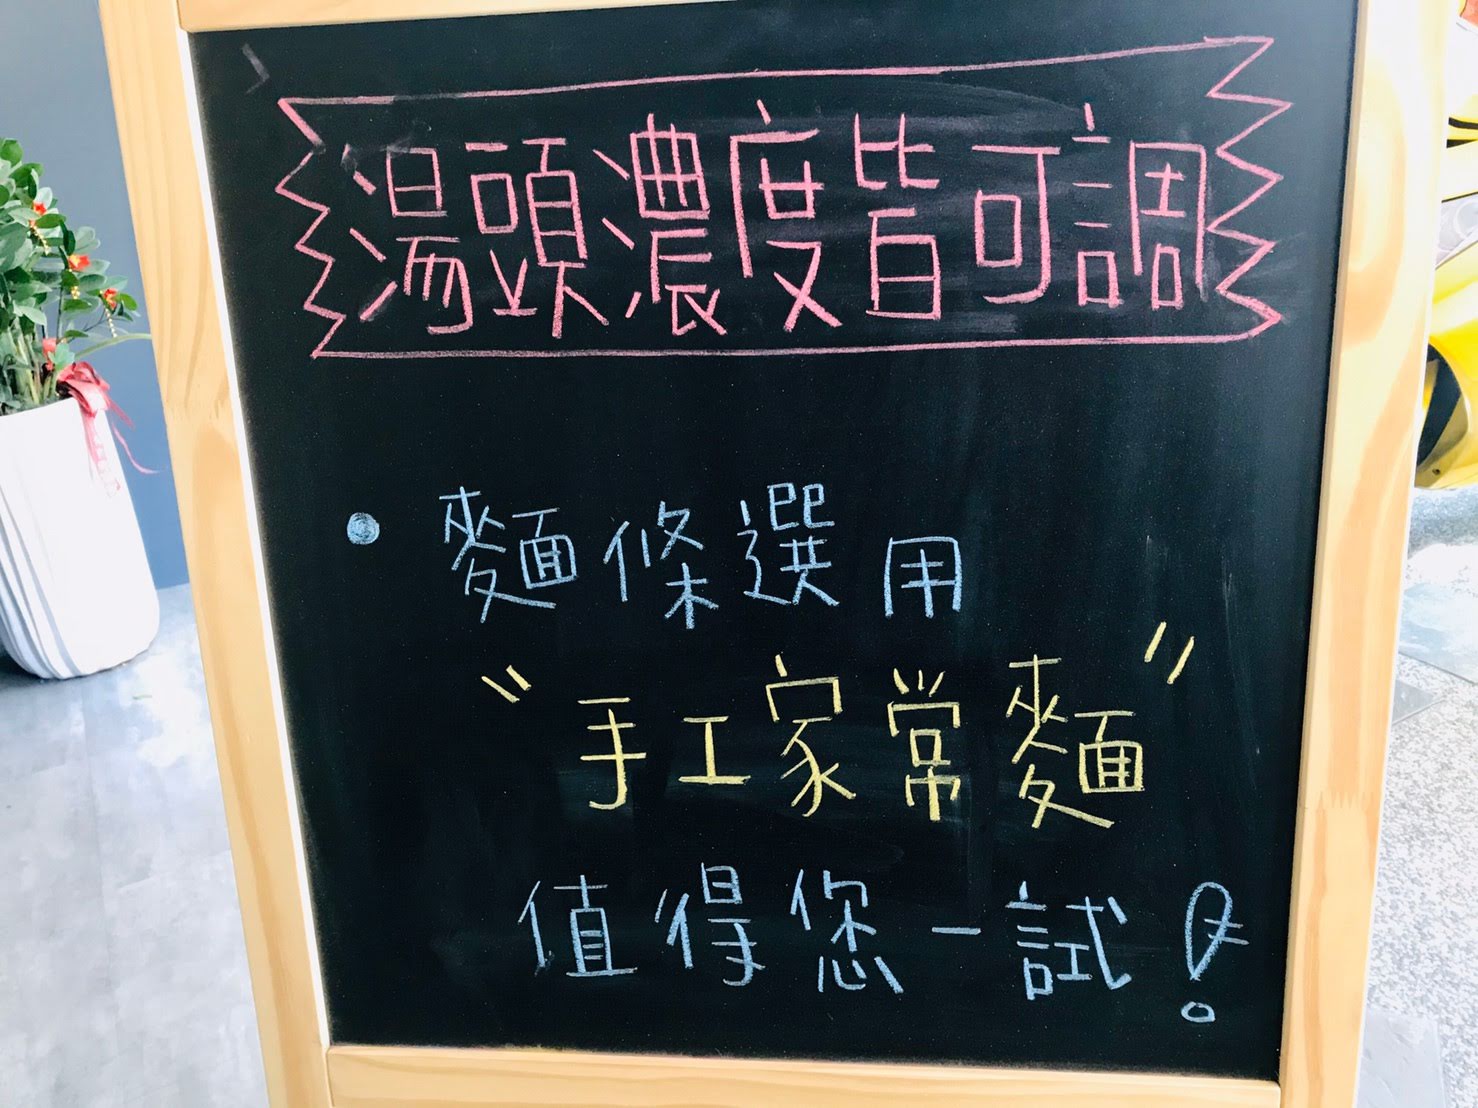 湯頭濃度皆可調
• 麵條選用
"手工家常麵"
值得您一試！